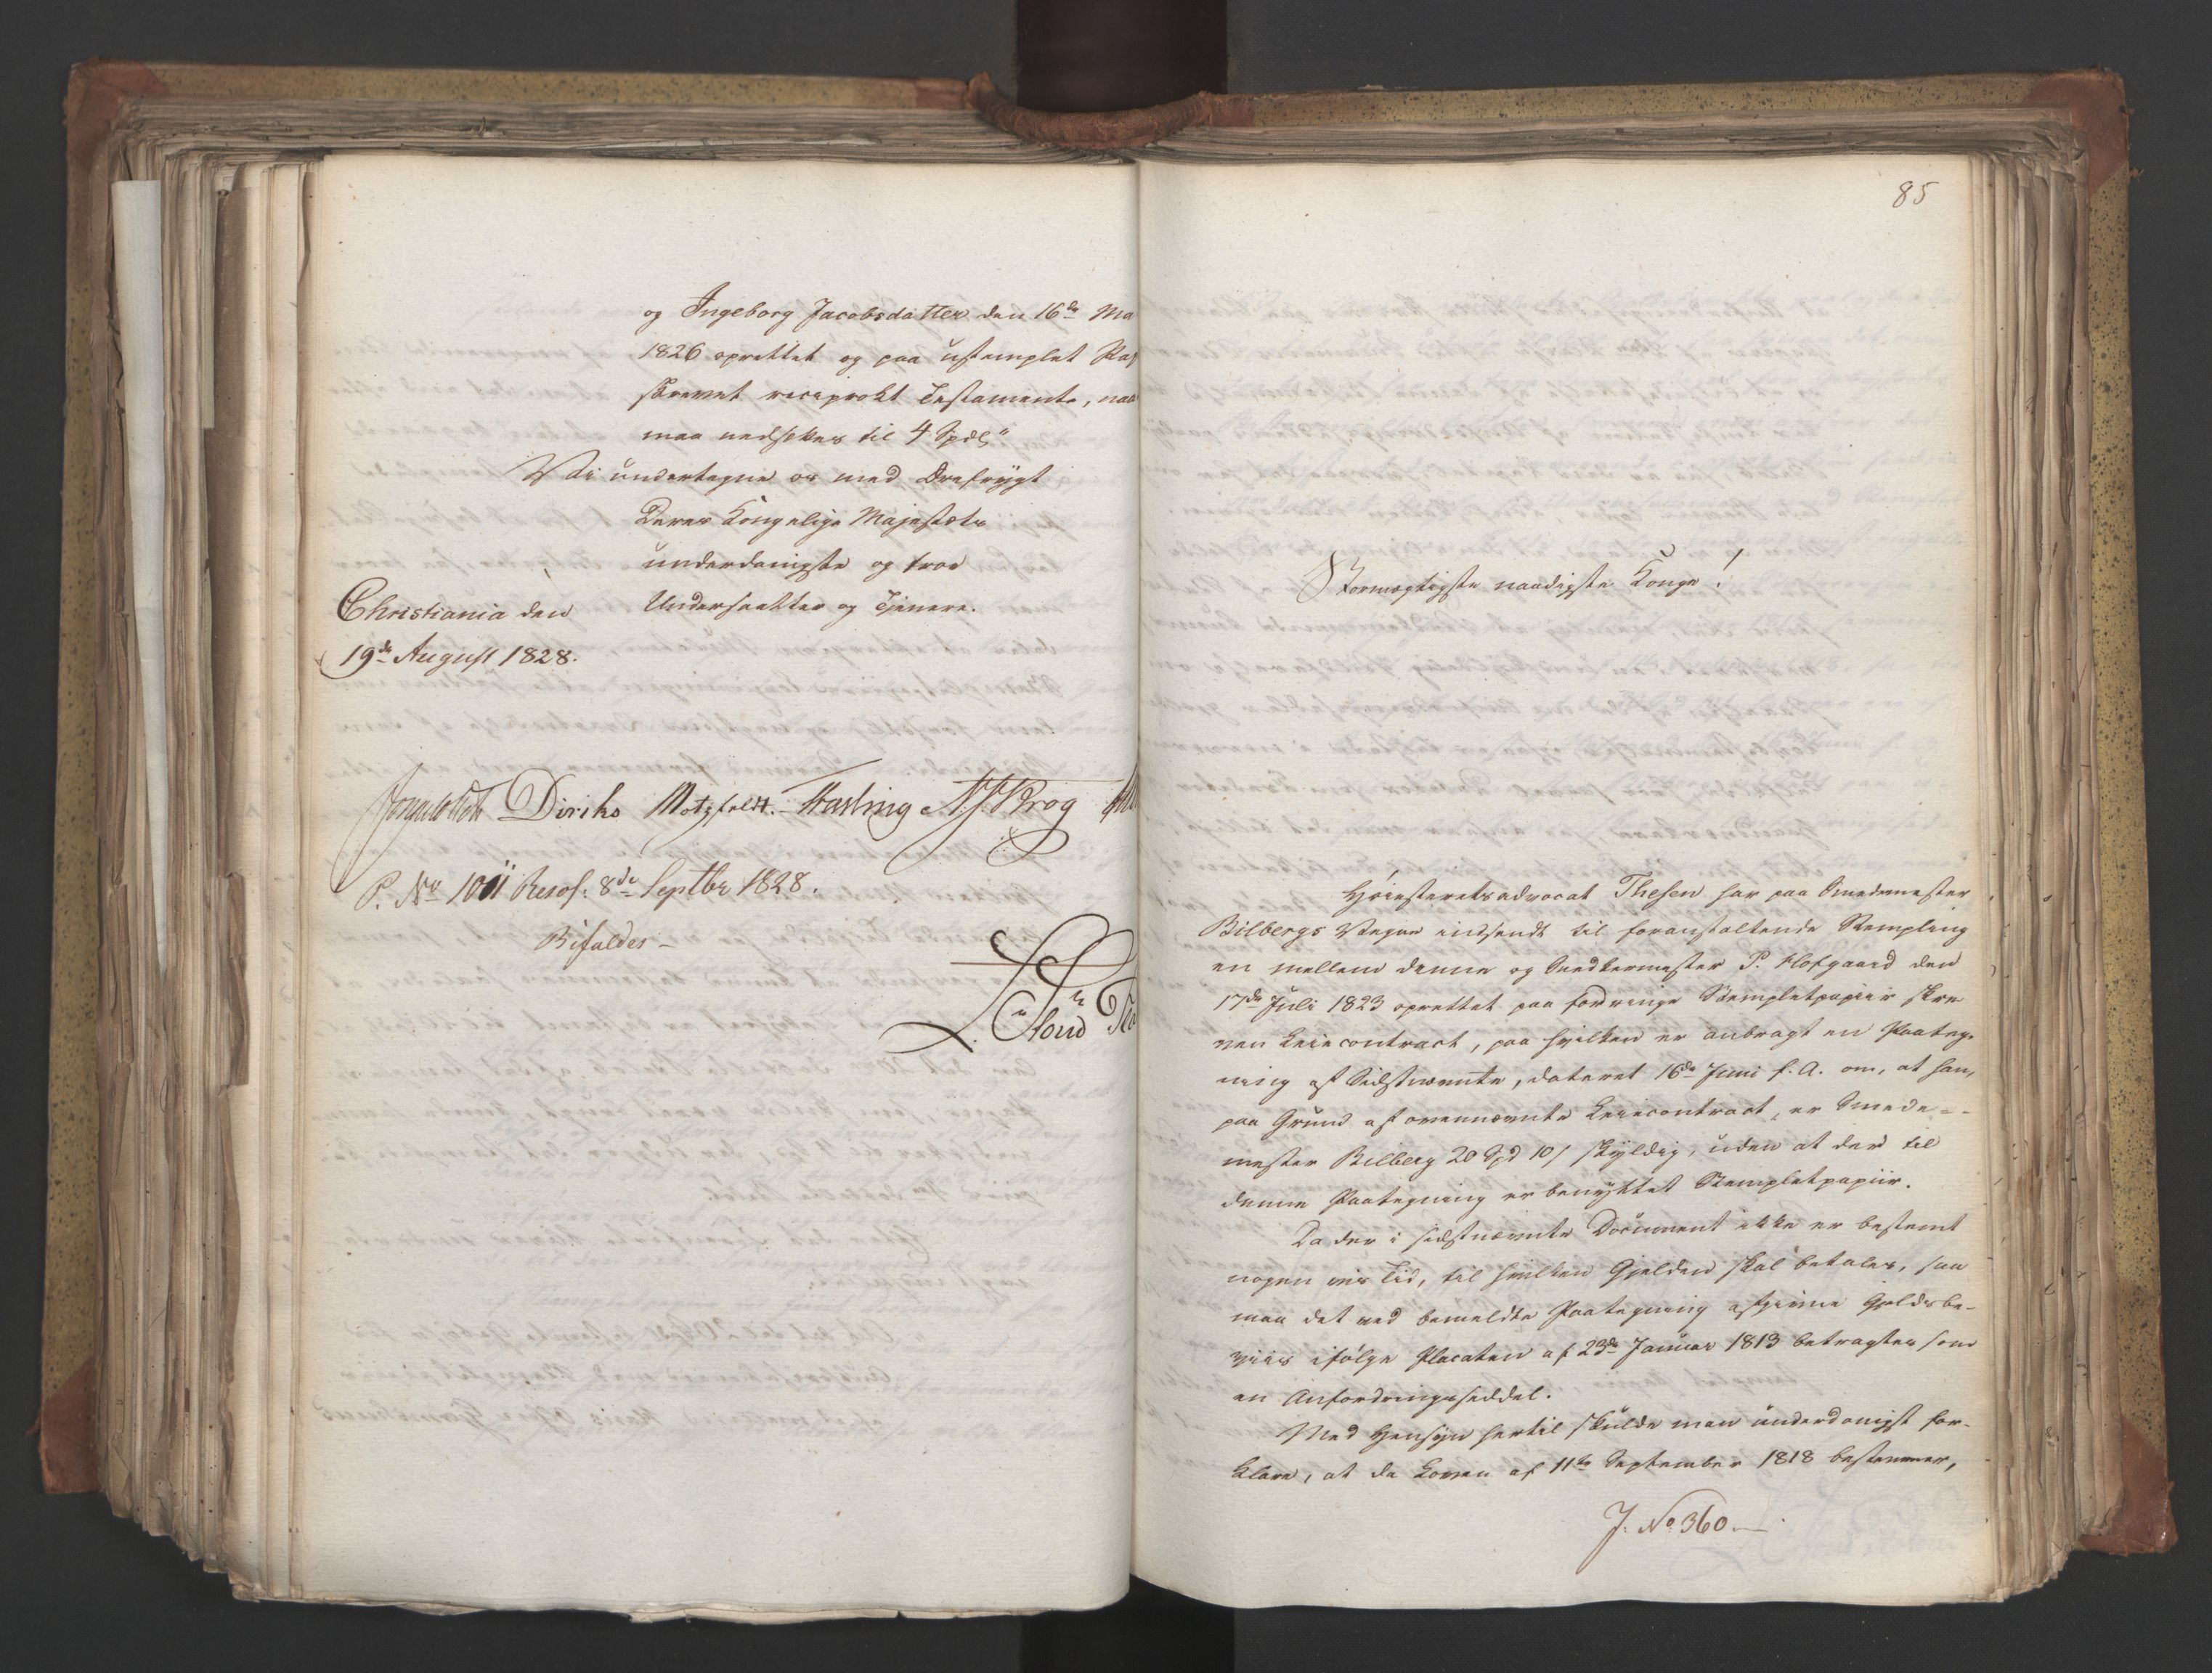 og Ingeborg Jacobsdatter den 16de Ma
1826 oprettet og paa ustemplet Pap
skrevet reciprokt Testamente, naa
maa nedsettes til 4 Spdl"
Vi undertegne os med Ærefrygt
Deres Kongelige Majestæts
underdanigste og troe
Undersaatter og Tjenere.
Christiania den
19de August 1828.
Diriks Motzfeldt. Fasting Krog
P. No 1011 Resol: 8de Septbr 1828.
Bifaldes -
85
Stormægtigste naadigste Konge!
Høiesteretsadvocat Thesen har paa Smedemester
Bilbergs Vegne indsendt til foranstaltende Stempling
en mellem denne og Snedkermester P. Hofgaard den
17de Juli 1823 oprettet paa forringe Stempletpapiir skre
ven Leiecontract, paa hvilken er anbragt en Paateg-
ning af Sidstnævnte, dateret 16de Juni f. A. om, at han,
paa Grund af ovennævnte Leiecontract, er Smede-
mester Bilberg 20 Spd 10 s skyldig, uden at der til
denne Paategning er benyttet Stempletpapiir.
Da der i sidstnævnte Document ikke er bestemt
nogen vis Tid, til hvilken Gjelden skal betales, saa
maa det ved bemeldte Paategning afgivne Gjeldsbe-
viis ifølge Placaten af 23de Januar 1813 betragtes som
en Anfordringsseddel.
Med Hensyn hertil skulde man underdanigst for-
klare, at da Loven af 11te September 1818 bestemmer,
J. No 360.